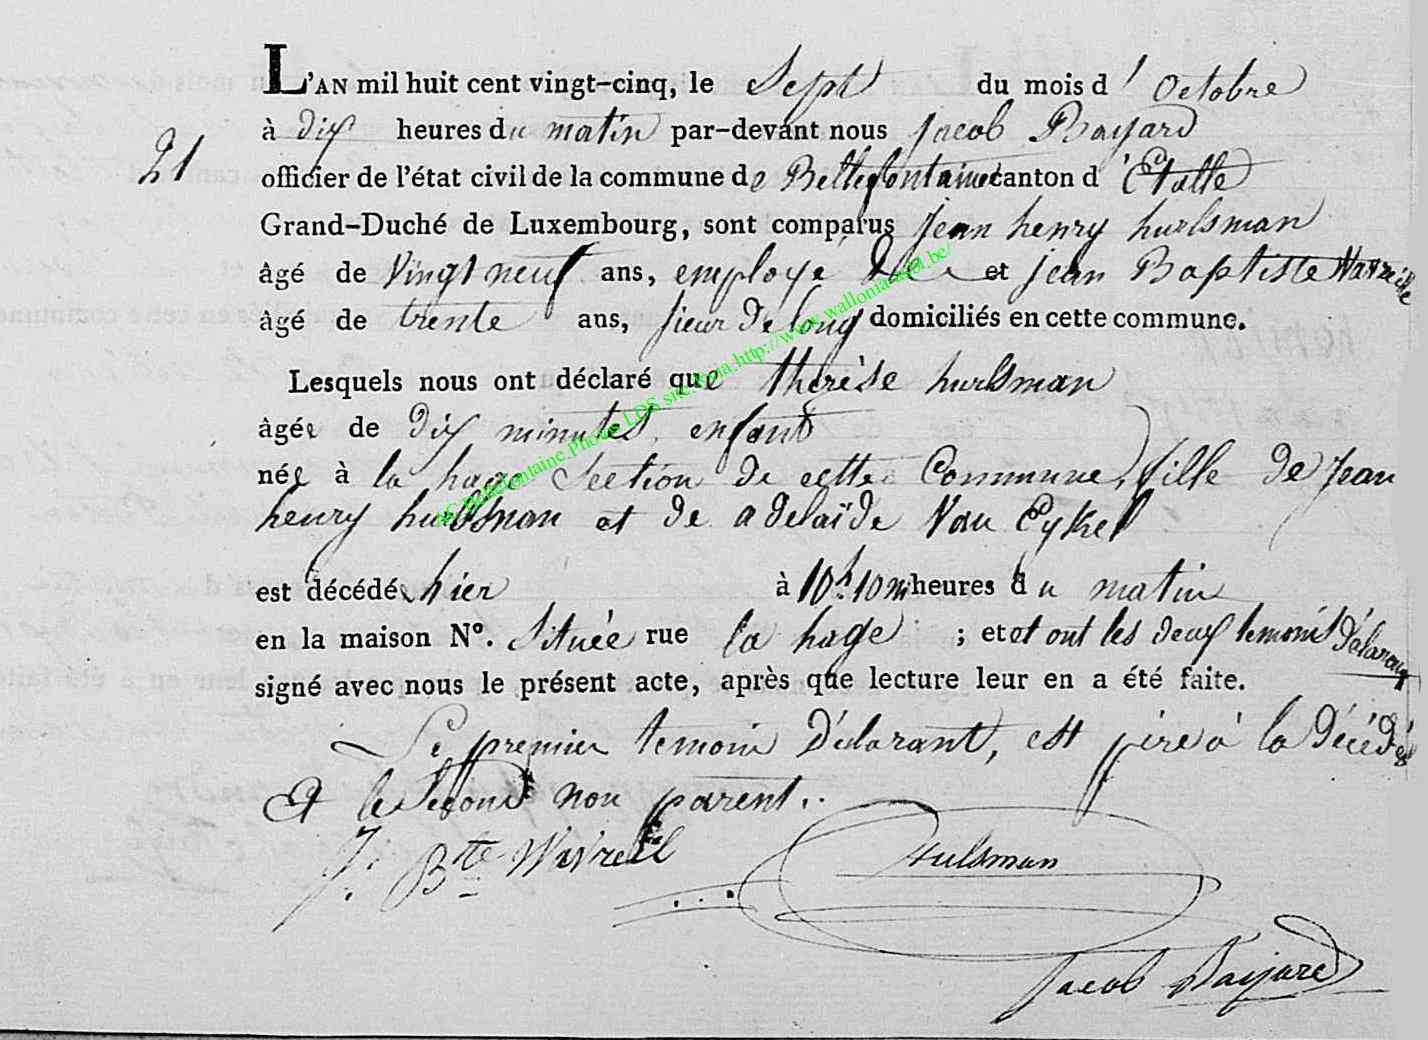 L'AN mil huit cent vingt-cinq, le Sept du mois d'Octobre
à dix heures du matin par-devant nous Jacob Bayard
21
officier de l'état civil de la commune de Bellefontaine canton d'Etalle
Grand-Duché de Luxembourg, sont comparus Jean henry hulsman
âgé de Vingt neuf ans, employé et jean Baptiste
âgé de trente ans, sieur de long domiciliés en cette commune.
Lesquels nous ont déclaré que thérèse hulsman
âgée de dix minutes, enfant
née à la hage Section de cette Commune, fille de Jean
henry hulsman et de adelaïde Van Eykel
est décédée hier à 10h. 10m heures du matin
en la maison N°. Située rue la hage ; et et ont les deux temoins déclarants
signé avec nous le présent acte, après que lecture leur en a été faite.
Le premier temoin déclarant, est père à la décédée
et le second non parent..
J. Bte
Hulsman
Jacob Bayard